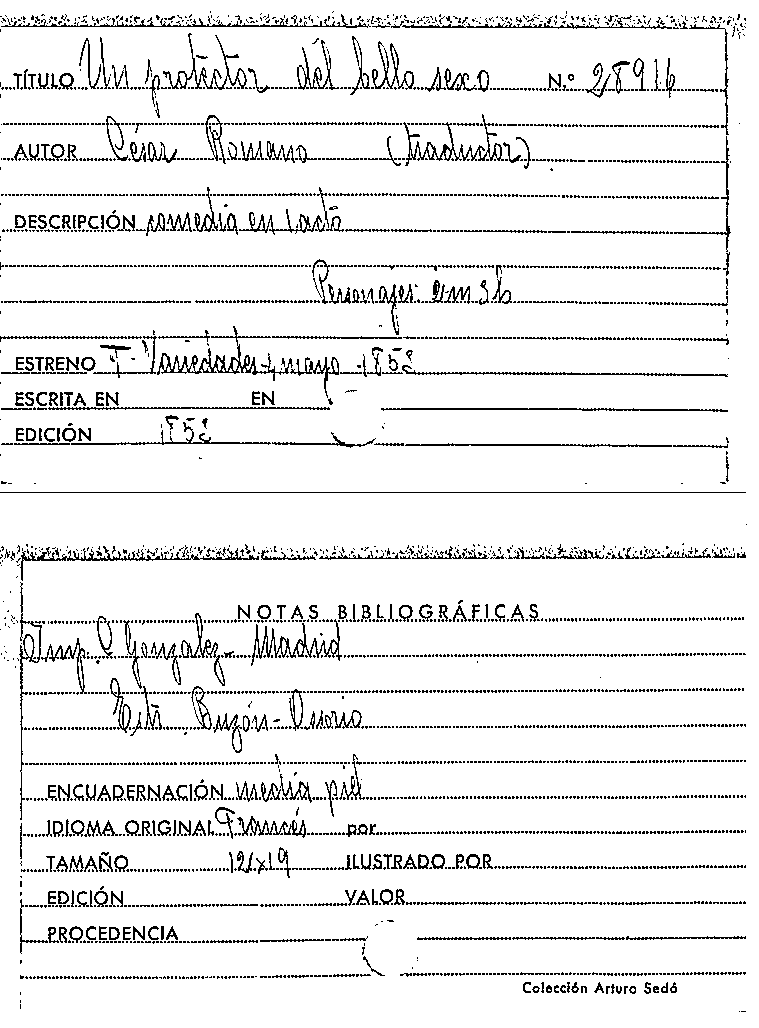 TÍTULO Un protector del bello sexo N.º 28916
AUTOR César Romano (traductor)
DESCRIPCIÓN comedia en 1 acto
Personajes 2m 3h
ESTRENO T. Variedades, mayo 1852
ESCRITA EN EN
EDICIÓN 1852
NOTAS BIBLIOGRÁFICAS
Imp. C. Gonzalez - Madrid
Estr. Buzón - Osorio
ENCUADERNACIÓN media piel
IDIOMA ORIGINAL Francés por
TAMAÑO 12x19 ILUSTRADO POR
EDICIÓN VALOR
PROCEDENCIA
Colección Arturo Sedó